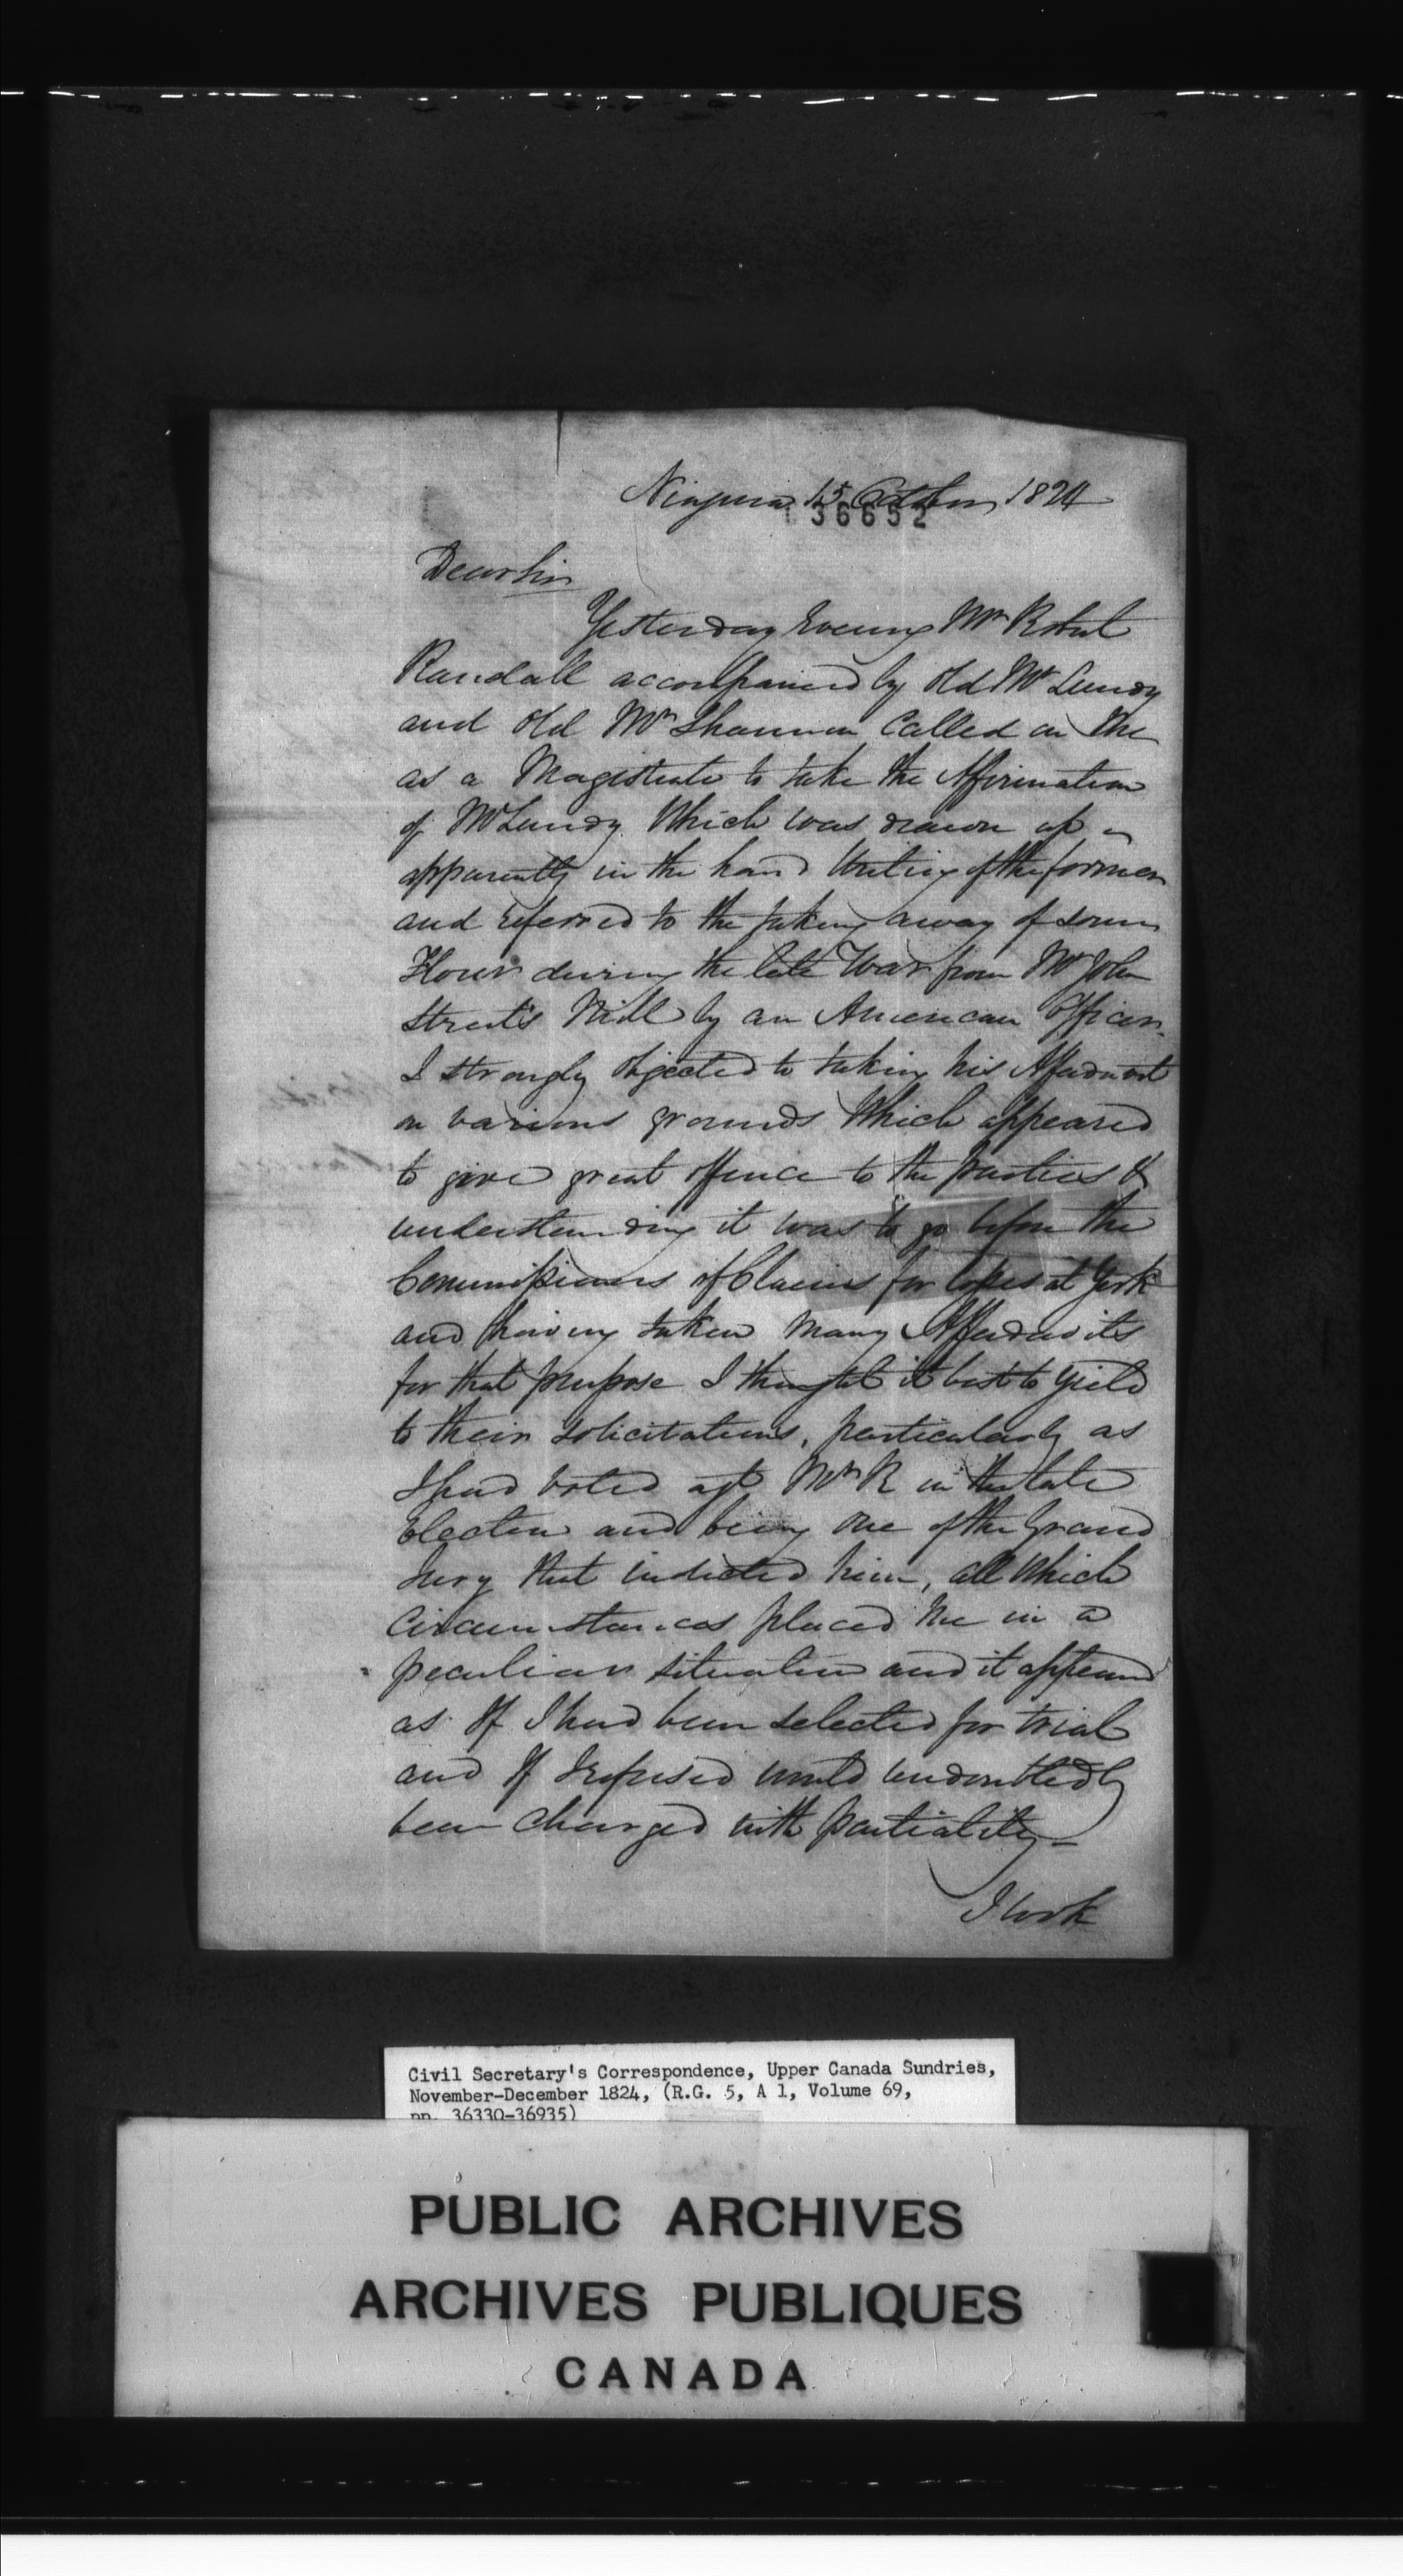 Niagara 15 October 1824
36652
Dear Sir
Yesterday Evening Mr Robert
Randall accompanied by old Mr Lundy
and old Mr Shannon Called on Me
as a Magistrate to take the Affirmation
of Mr Lundy Which was drawn up
apparently in the hand Writing of the former
and referred to the taking away of some
Flour during the late War from Mr John
Street's Mill by an American Officer.
I strongly objected to taking his Affadavit
on various grounds Which appeared
to give great offence to the parties &
understanding it was to go before the
Commissioners of Claims for losses at York
and having taken Many Affadavits
for that purpose I thought it best to yield
to their solicitations, particularly as
I had voted agt Mr R in the late
Election and being one of the Grand
Jury that indicted him, all Which
Circumstances placed Me in a
peculiar situation and it appeared
as If I had been selected for trial
and If I refused would undoubtedly
been Charged with partiality—
I took
Civil Secretary's Correspondence, Upper Canada Sundries,
November-December 1824, (R.G. 5, A 1, Volume 69,
pp. 36330-36935)
PUBLIC ARCHIVES
ARCHIVES PUBLIQUES
CANADA